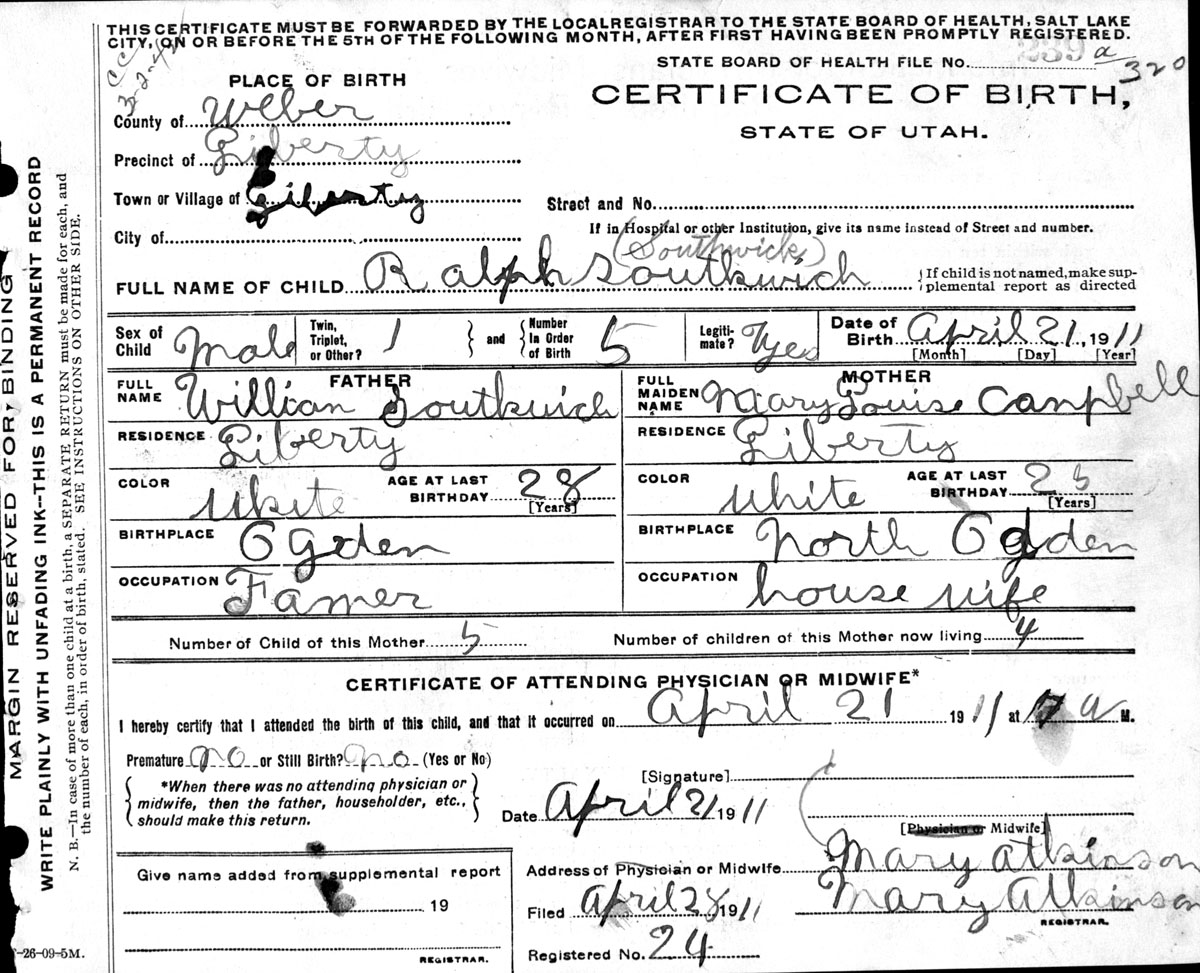 THIS CERTIFICATE MUST BE FORWARDED BY THE LOCAL REGISTRAR TO THE STATE BOARD OF HEALTH, SALT LAKE
CITY, ON OR BEFORE THE 5TH OF THE FOLLOWING MONTH, AFTER FIRST HAVING BEEN PROMPTLY REGISTERED.
STATE BOARD OF HEALTH FILE No. 239 a 320
PLACE OF BIRTH
CERTIFICATE OF BIRTH,
STATE OF UTAH.
County of Weber
Precinct of Liberty
Town or Village of Liberty
Street and No.
City of
If in Hospital or other Institution, give its name instead of Street and number.
(Southwick)
FULL NAME OF CHILD Ralph Southwich
If child is not named, make sup-
plemental report as directed
Sex of Child Male Twin, Triplet, or Other? 1 and Number in Order of Birth 5 Legiti-mate? Yes Date of Birth April 21, 1911
[Month] [Day] [Year]
FATHER MOTHER
FULL NAME Willian Southwich FULL MAIDEN NAME Mary Louise Canpbell
RESIDENCE Liberty RESIDENCE Liberty
COLOR White AGE AT LAST BIRTHDAY 28 [Years] COLOR White AGE AT LAST BIRTHDAY [Years]
BIRTHPLACE Ogden BIRTHPLACE North Ogden
OCCUPATION Famer OCCUPATION house wife
Number of Child of this Mother 5 Number of children of this Mother now living 4
CERTIFICATE OF ATTENDING PHYSICIAN OR MIDWIFE*
I hereby certify that I attended the birth of this child, and that it occurred on April 21 1911 at 7 a M.
Premature no or Still Birth? no (Yes or No)
[Signature]
*When there was no attending physician or
midwife, then the father, householder, etc.,
should make this return.
Date April 21 1911
[Physician or Midwife]
Give name added from supplemental report
19
REGISTRAR.
Address of Physician or Midwife Mary Atkinson
Filed April 28 1911 Mary Atkinson
REGISTRAR.
Registered No. 24
-26-09-5M.
MARGIN RESERVED FOR BINDING
WRITE PLAINLY WITH UNFADING INK—THIS IS A PERMANENT RECORD
N. B.—In case of more than one child at a birth, a SEPARATE RETURN must be made for each, and
the number of each, in order of birth, stated. SEE INSTRUCTIONS ON OTHER SIDE.